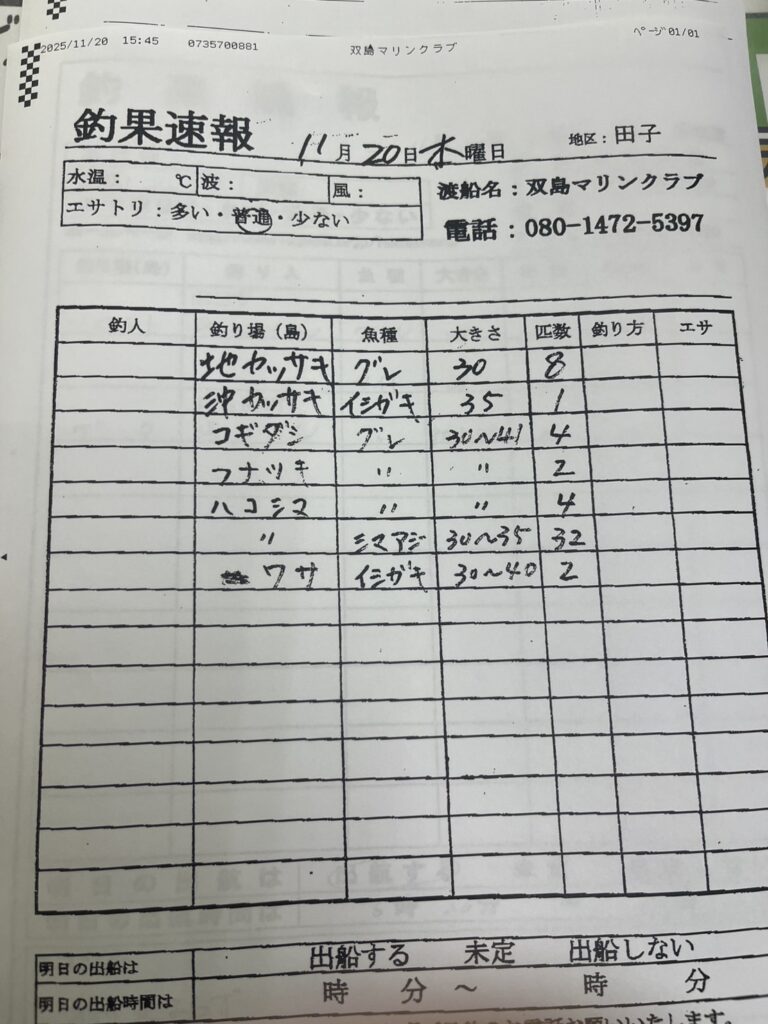 2025/11/20 15:45 0735700881 双島マリンクラブ ページ 01/01
釣果速報 11月20日木曜日 地区：田子
水温： ℃ 波： 風：
渡船名：双島マリンクラブ
エサトリ：多い・普通・少ない
電話：080-1472-5397
釣人 釣り場（島） 魚種 大きさ 匹数 釣り方 エサ
地カッサキ グレ 30 8
沖カッサキ イシガキ 35 1
コギダシ グレ 30〜41 4
フナツキ 〃 〃 2
ハコシマ 〃 〃 4
〃 シマアジ 30〜35 32
ワサ イシガキ 30〜40 2
明日の出船は 出船する 未定 出船しない
明日の出船時間は 時 分 〜 時 分
お電話お願いいたします。